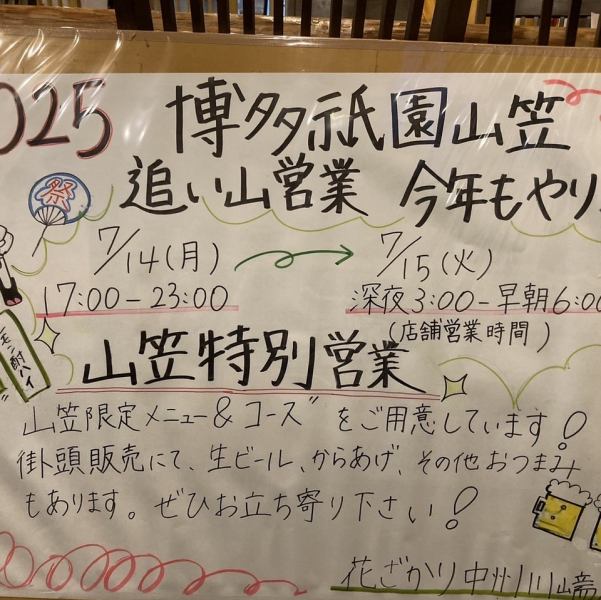 2025 博多祇園山笠
追い山営業 今年もやり
祭
7/14(月) 7/15(火)
17:00-23:00 深夜3:00-早朝6:00
(店舗営業時間)
山笠特別営業
モン酎ハイ
山笠限定メニュー&コース” をご用意しています!
街頭販売にて、生ビール、からあげ、その他おつまみ
もあります。ぜひお立ち寄り下さい!
花ざかり中州川端